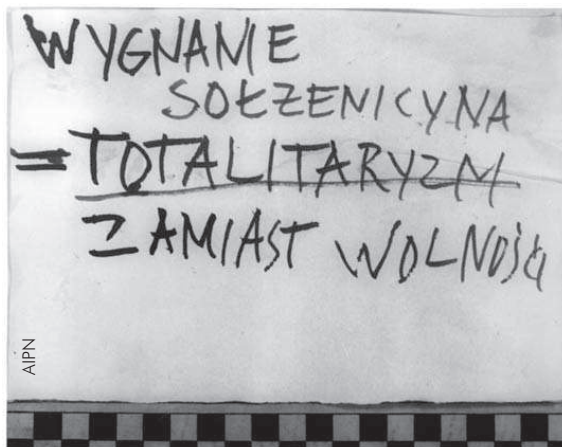 WYGNANIE
SOŁZENICYNA
= TOTALITARYZM
ZAMIAST WOLNOŚCI
AIPN